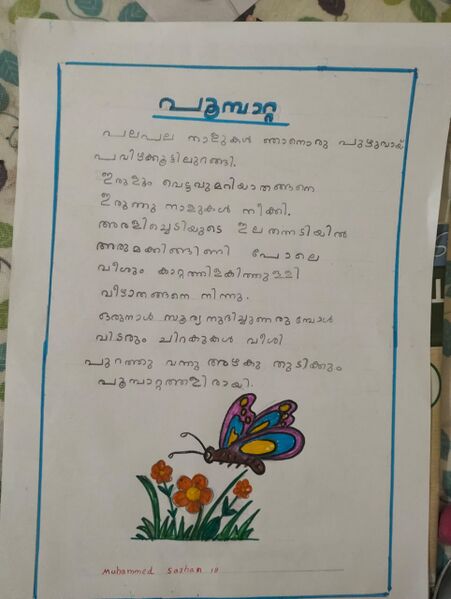 പൂമ്പാറ്റ
പലപല നാളുകൾ ഞാനൊരു പുഴുവായ്
പവിഴക്കൂട്ടിലുറങ്ങി.
ഇരുളും വെട്ടവുമറിയാതങ്ങനെ
ഇരുന്നു നാളുകൾ നീക്കി.
അരളിച്ചെടിയുടെ ഇലതന്നടിയിൽ
അരുമക്കിങ്ങിണി പോലെ
വീശും കാറ്റത്തിളകിത്തുള്ളി
വീഴാതങ്ങനെ നിന്നു.
ഒരുനാൾ സൂര്യനുദിച്ചുവരുമ്പോൾ
വിടരും ചിറകുകൾ വീശി
പുറത്തു വന്നു അഴകു തുടിക്കും
പൂമ്പാറ്റത്തളിരായി.
Muhammed